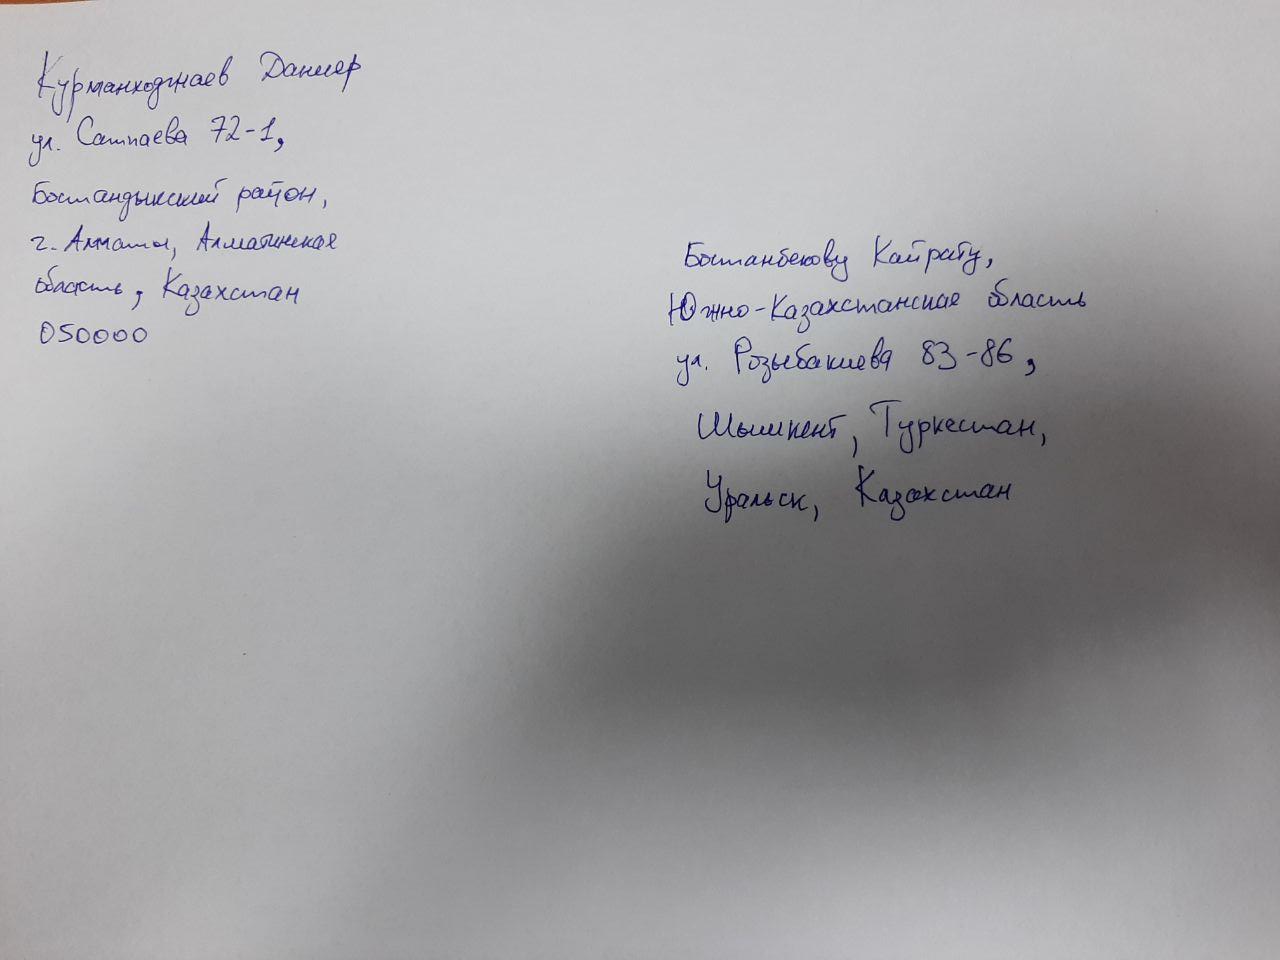 Курманходжаев Данияр
ул. Сатпаева 72-1,
Бостандыкский район,
г. Алматы, Алматинская
область, Казахстан
050000
Бостанбекову Кайрату,
Южно-Казахстанская область
ул. Розыбакиева 83-86,
Шымкент, Туркестан,
Уральск, Казахстан